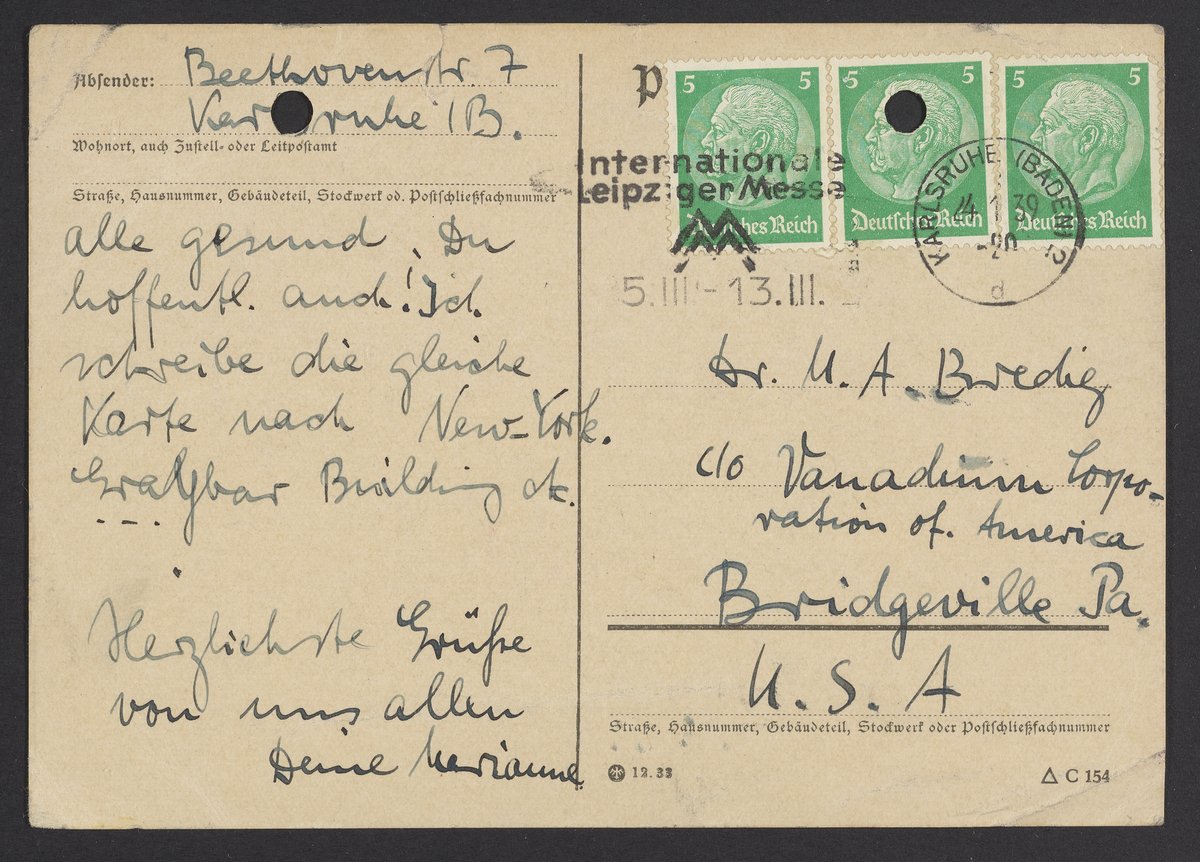 Absender: Beethovenstr. 7
Karlsruhe i/B.
Wohnort, auch Zustell- oder Leitpostamt
Straße, Hausnummer, Gebäudeteil, Stockwerk od. Postschließfachnummer
alle gesund, Du
hoffentl. auch! Ich
schreibe die gleiche
Karte nach New-York.
Graybar Building etc.
Herzlichste Grüße
von uns allen
Deine Marianne
P
5 5 5 5 5
Internationale
Leipziger Messe
MM
5.III.-13.III.
KARLSRUHE (BADEN) 2
1 39
-20
d
hes Reich
Deutsches Reich
Deutsches Reich
Dr. M. A. Bredig
c/o Vanadium Corpo-
ration of. America
Bridgeville Pa.
U. S. A
Straße, Hausnummer, Gebäudeteil, Stockwerk oder Postschließfachnummer
12.33
C 154